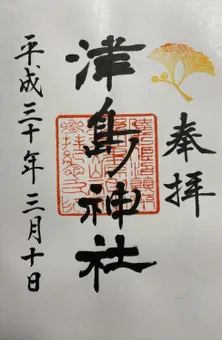 奉拝
津島ノ神社
平成三十年三月十日